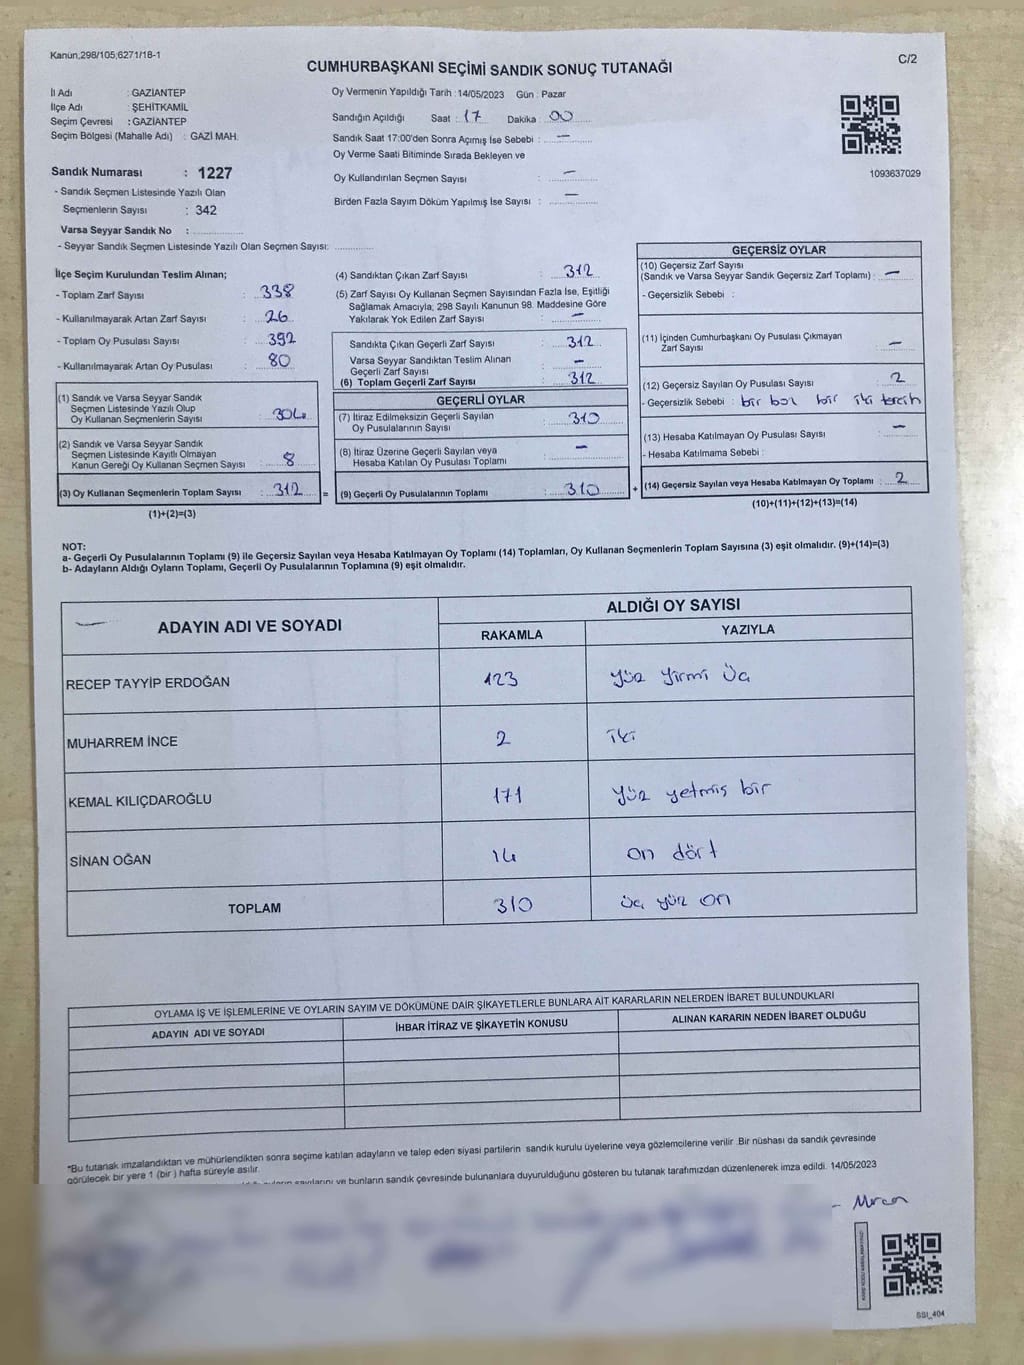 Kanun,298/105;6271/18-1
C/2
CUMHURBAŞKANI SEÇİMİ SANDIK SONUÇ TUTANAĞI
İl Adı : GAZİANTEP
İlçe Adı : ŞEHİTKAMİL
Seçim Çevresi : GAZİANTEP
Seçim Bölgesi (Mahalle Adı) : GAZİ MAH.
Sandık Numarası : 1227
- Sandık Seçmen Listesinde Yazılı Olan
Seçmenlerin Sayısı : 342
Varsa Seyyar Sandık No : ..............
- Seyyar Sandık Seçmen Listesinde Yazılı Olan Seçmen Sayısı: ............
Oy Vermenin Yapıldığı Tarih : 14/05/2023 Gün : Pazar
Sandığın Açıldığı Saat : 17 Dakika : 00
Sandık Saat 17:00'den Sonra Açımış İse Sebebi : —
Oy Verme Saati Bitiminde Sırada Bekleyen ve
Oy Kullandırılan Seçmen Sayısı : —
Birden Fazla Sayım Döküm Yapılmış İse Sayısı : —
1093637029
İlçe Seçim Kurulundan Teslim Alınan;
- Toplam Zarf Sayısı : 338
- Kullanılmayarak Artan Zarf Sayısı : 26
- Toplam Oy Pusulası Sayısı : 392
- Kullanılmayarak Artan Oy Pusulası : 80
(1) Sandık ve Varsa Seyyar Sandık
Seçmen Listesinde Yazılı Olup
Oy Kullanan Seçmenlerin Sayısı : 304
(2) Sandık ve Varsa Seyyar Sandık
Seçmen Listesinde Kayıtlı Olmayan
Kanun Gereği Oy Kullanan Seçmen Sayısı : 8
(3) Oy Kullanan Seçmenlerin Toplam Sayısı : 312 =
(1)+(2)=(3)
(4) Sandıktan Çıkan Zarf Sayısı : 312
(5) Zarf Sayısı Oy Kullanan Seçmen Sayısından Fazla İse, Eşitliği
Sağlamak Amacıyla, 298 Sayılı Kanunun 98. Maddesine Göre
Yakılarak Yok Edilen Zarf Sayısı : —
Sandıkta Çıkan Geçerli Zarf Sayısı : 312
Varsa Seyyar Sandıktan Teslim Alınan
Geçerli Zarf Sayısı : —
(6) Toplam Geçerli Zarf Sayısı : 312
GEÇERLİ OYLAR
(7) İtiraz Edilmeksizin Geçerli Sayılan
Oy Pusulalarının Sayısı : 310
(8) İtiraz Üzerine Geçerli Sayılan veya
Hesaba Katılan Oy Pusulası Toplamı : —
(9) Geçerli Oy Pusulalarının Toplamı : 310 +
GEÇERSİZ OYLAR
(10) Geçersiz Zarf Sayısı
(Sandık ve Varsa Seyyar Sandık Geçersiz Zarf Toplamı) : —
- Geçersizlik Sebebi :
(11) İçinden Cumhurbaşkanı Oy Pusulası Çıkmayan
Zarf Sayısı : —
(12) Geçersiz Sayılan Oy Pusulası Sayısı : 2
- Geçersizlik Sebebi : bir bir iki tercih
(13) Hesaba Katılmayan Oy Pusulası Sayısı : —
- Hesaba Katılmama Sebebi :
(14) Geçersiz Sayılan veya Hesaba Katılmayan Oy Toplamı : 2
(10)+(11)+(12)+(13)=(14)
NOT:
a- Geçerli Oy Pusulalarının Toplamı (9) ile Geçersiz Sayılan veya Hesaba Katılmayan Oy Toplamı (14) Toplamları, Oy Kullanan Seçmenlerin Toplam Sayısına (3) eşit olmalıdır. (9)+(14)=(3)
b- Adayların Aldığı Oyların Toplamı, Geçerli Oy Pusulalarının Toplamına (9) eşit olmalıdır.
ADAYIN ADI VE SOYADI
ALDIĞI OY SAYISI
RAKAMLA YAZIYLA
RECEP TAYYİP ERDOĞAN 123 yüz yirmi üç
MUHARREM İNCE 2 iki
KEMAL KILIÇDAROĞLU 171 yüz yetmiş bir
SİNAN OĞAN 14 on dört
TOPLAM 310 üç yüz on
OYLAMA İŞ VE İŞLEMLERİNE VE OYLARIN SAYIM VE DÖKÜMÜNE DAİR ŞİKAYETLERLE BUNLARA AİT KARARLARIN NELERDEN İBARET BULUNDUKLARI
ADAYIN ADI VE SOYADI İHBAR İTİRAZ VE ŞİKAYETİN KONUSU ALINAN KARARIN NEDEN İBARET OLDUĞU
*Bu tutanak imzalandıktan ve mühürlendikten sonra seçime katılan adayların ve talep eden siyasi partilerin sandık kurulu üyelerine veya gözlemcilerine verilir .Bir nüshası da sandık çevresinde
görülecek bir yere 1 (bir ) hafta süreyle asılır.
sayılarını ve bunların sandık çevresinde bulunanlara duyurulduğunu gösteren bu tutanak tarafımızdan düzenlenerek imza edildi. 14/05/2023
SSI_404